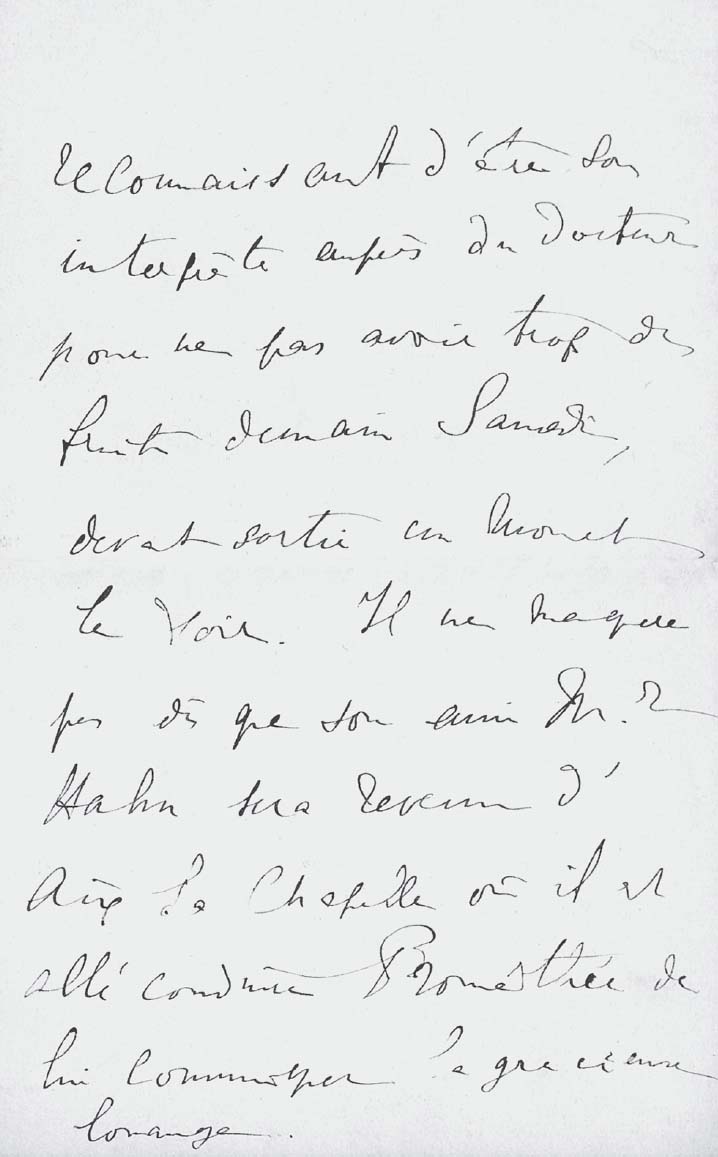 reconnaissant d'être son
interprète auprès du Docteur
pour ne pas avoir trop de
bruit demain Samedi,
devant sortir un moment
le soir. Il ne manquera
pas dès que son ami Mr. R
Hahn sera revenu d'
Aix la Chapelle où il est
allé conduire Prométhée de
lui communiquer la gracieuse
louange.